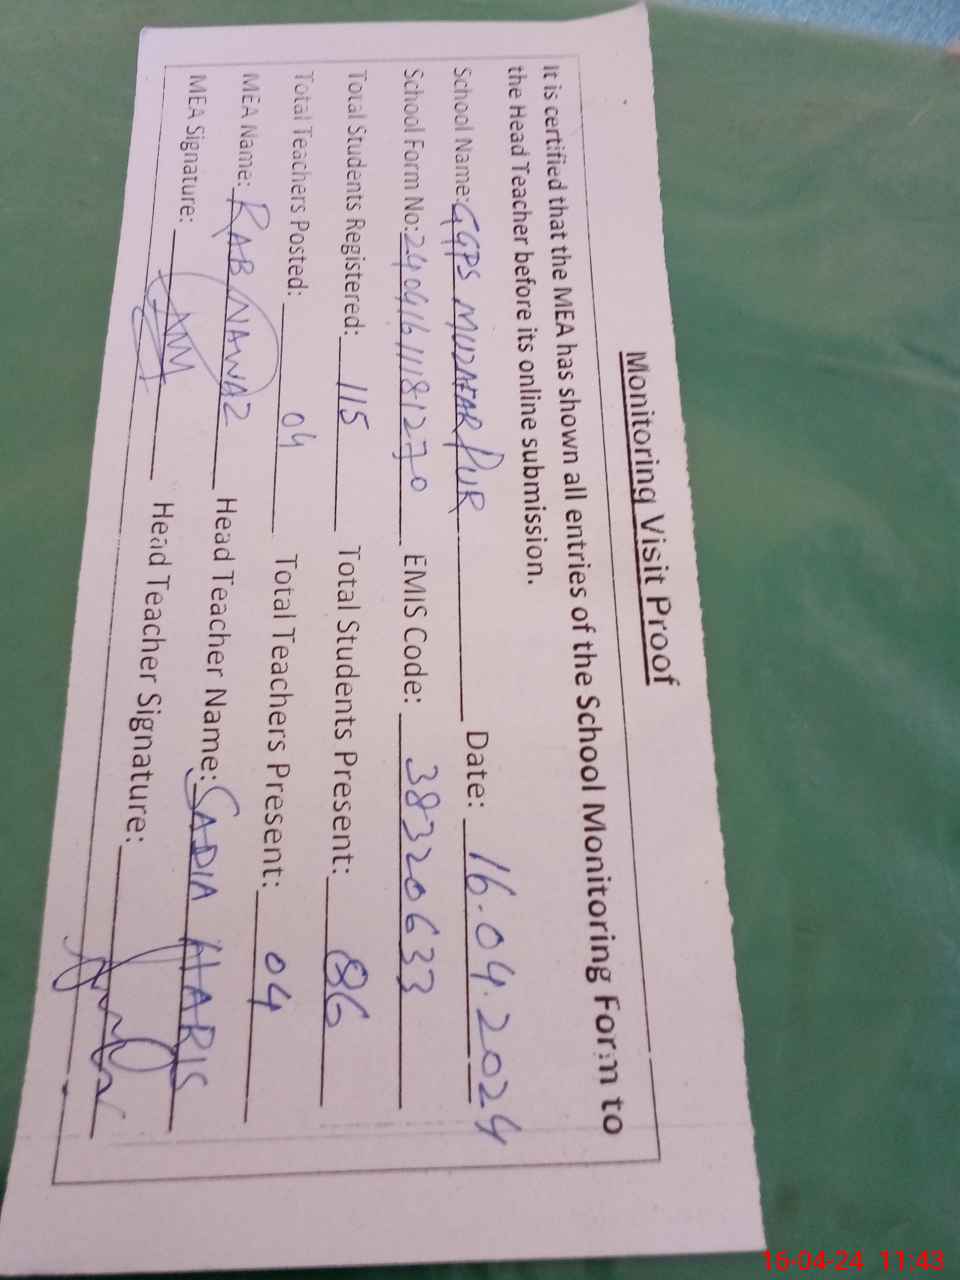 Monitoring Visit Proof
It is certified that the MEA has shown all entries of the School Monitoring Form to
the Head Teacher before its online submission.
School Name: GGPS MUZAFAR PUR Date: 16.04.2024
School Form No: 24041611181270 EMIS Code: 38320633
Total Students Registered: 115 Total Students Present: 86
Total Teachers Posted: 04 Total Teachers Present: 04
MEA Name: RAB NAWAZ Head Teacher Name: SADIA HARIS
MEA Signature: Head Teacher Signature:
16-04-24 11:43